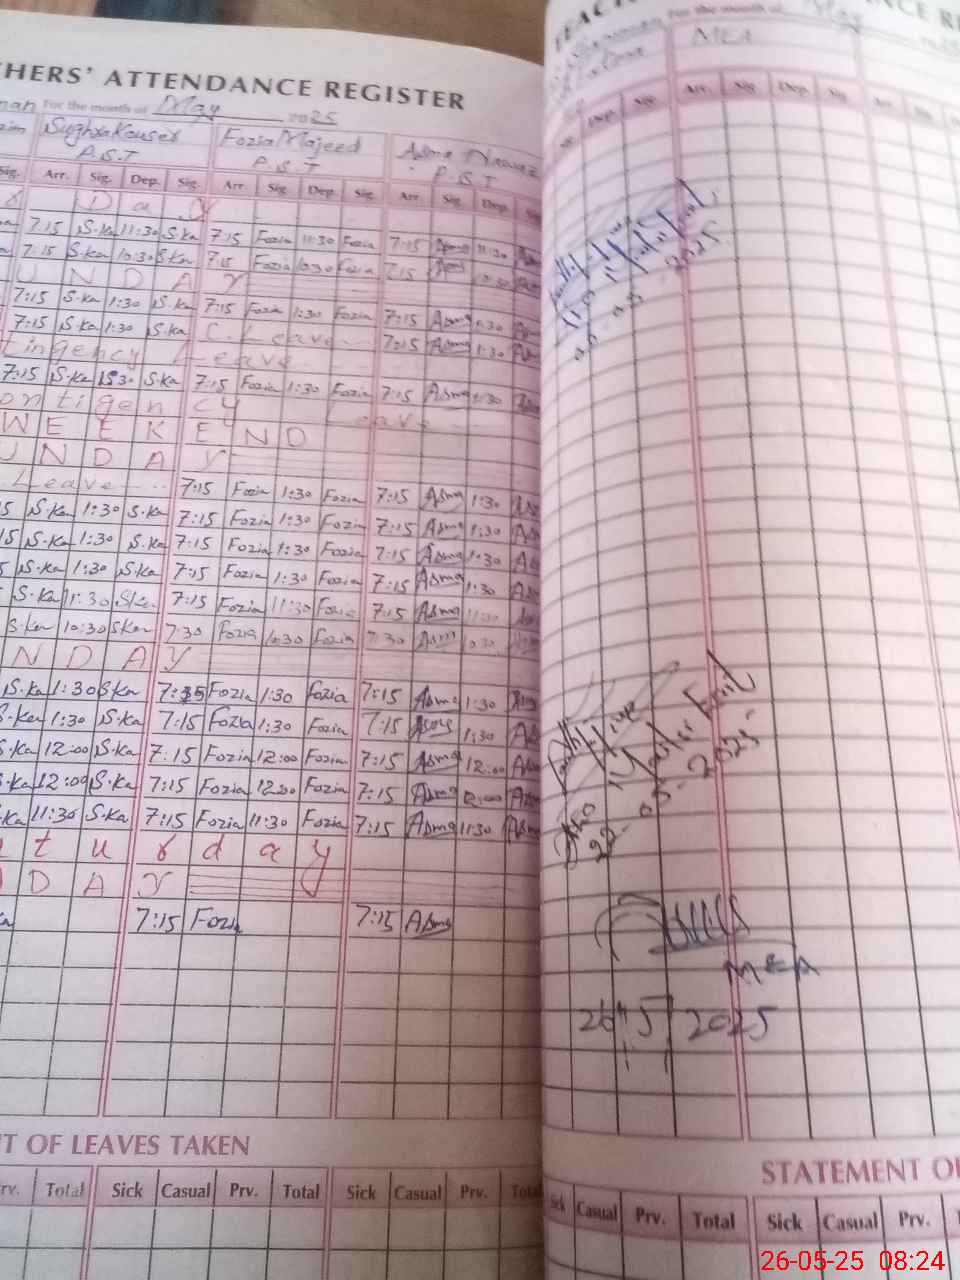 HERS' ATTENDANCE REGISTER
For the month of May 2025
Sughra Kouser Fozia Majeed Asma Nawaz
P.S.T P.S.T P.S.T
Sig. Arr. Sig. Dep. Sig. Arr. Sig. Dep. Sig. Arr. Sig. Dep.
D a y
7:15 S.Ka 11:30 S.Ka 7:15 Fozia 11:30 Fozia 7:15 Asma 11:30
7:15 S.Ka 10:30 S.Ka 7:15 Fozia 10:30 Fozia 7:15 Asma 10:30
U N D A Y
7:15 S.Ka 1:30 S.Ka 7:15 Fozia 1:30 Fozia 7:15 Asma 1:30
7:15 S.Ka 1:30 S.Ka C. Leave 7:15 Asma 1:30
tingency Leave
7:15 S.Ka 1:30 S.Ka 7:15 Fozia 1:30 Fozia 7:15 Asma 1:30
ontigency Leave
W E E K E N D
U N D A Y
Leave 7:15 Fozia 1:30 Fozia 7:15 Asma 1:30
S.Ka 1:30 S.Ka 7:15 Fozia 1:30 Fozia 7:15 Asma 1:30
S.Ka 1:30 S.Ka 7:15 Fozia 1:30 Fozia 7:15 Asma 1:30
S.Ka 1:30 S.Ka 7:15 Fozia 1:30 Fozia 7:15 Asma 1:30
S.Ka 11:30 S.Ka 7:15 Fozia 11:30 Fozia 7:15 Asma 11:30
S.Ka 10:30 S.Ka 7:30 Fozia 10:30 Fozia 7:30 Asma 10:30
N D A Y
S.Ka 1:30 S.Ka 7:15 Fozia 1:30 Fozia 7:15 Asma 1:30
S.Ka 1:30 S.Ka 7:15 Fozia 1:30 Fozia 7:15 Asma 1:30
S.Ka 12:00 S.Ka 7:15 Fozia 12:00 Fozia 7:15 Asma 12:00
S.Ka 12:00 S.Ka 7:15 Fozia 12:00 Fozia 7:15 Asma 12:00
S.Ka 11:30 S.Ka 7:15 Fozia 11:30 Fozia 7:15 Asma 11:30
t u r d a y
D A Y
7:15 Fozia 7:15 Asma
T OF LEAVES TAKEN
Prv. Total Sick Casual Prv. Total Sick Casual Prv. Total
For the month of May
MEA
Dep. Sig. Arr. Sig. Dep. Sig. Arr. Sig.
2025
22-05-2025
MEA
26/5/2025
STATEMENT O
Sick Casual Prv. Total Sick Casual Prv.
26-05-25 08:24